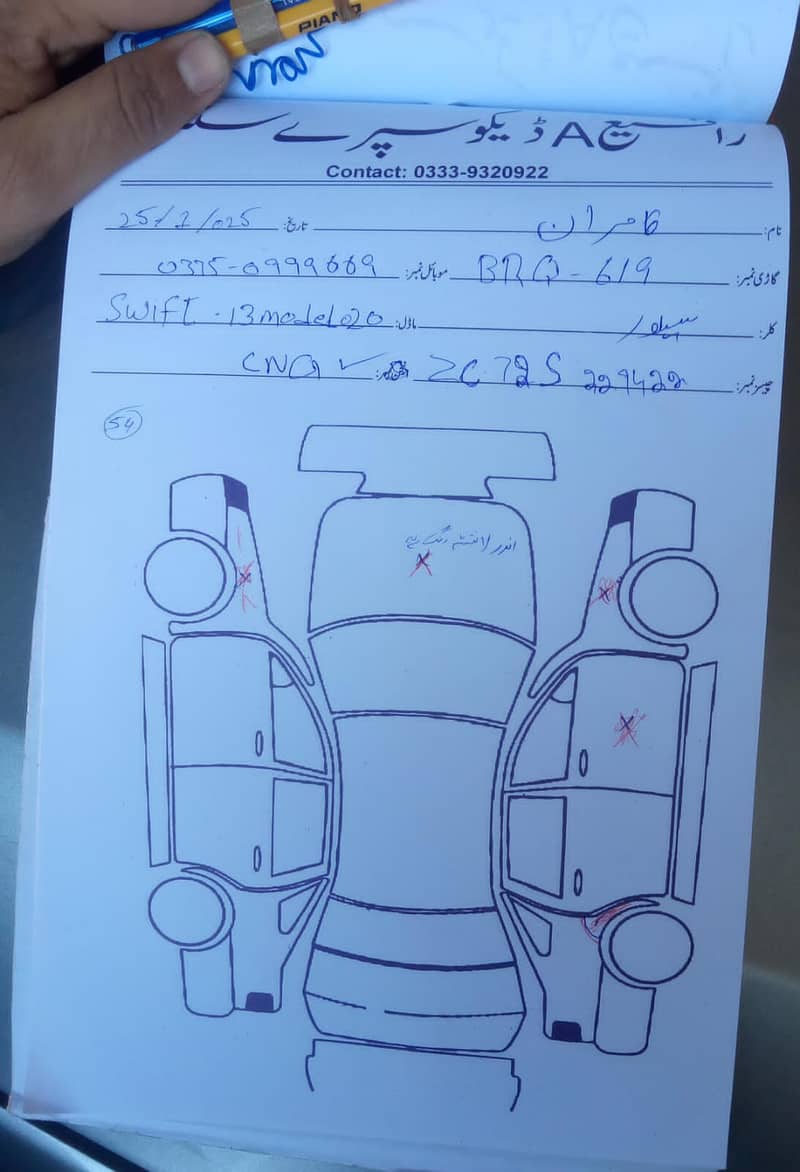 PIANO
را فیع A ڈیکو سپرے
Contact: 0333-9320922
نام: کامران تاریخ: 25/1/025
گاڑی نمبر: BRQ - 619 موبائل نمبر: 0375-0999669
کلر: سیلور ماڈل: SWIFT - 13 model 020
چیسز نمبر: ZC 72S 229422 CNG ✓
54
اندر